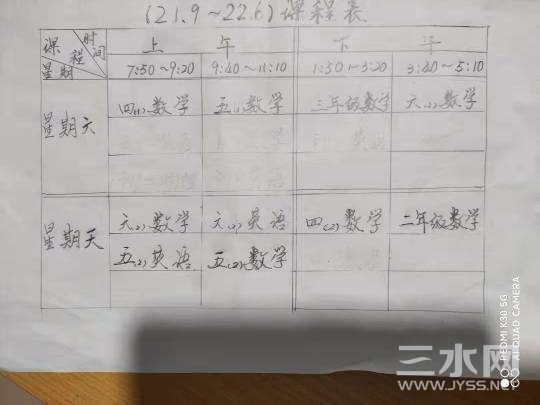 (21.9~22.6)课程表
课程 时间 星期
上 午 下 午
7:50~9:20 9:40~11:10 1:50~3:20 3:40~5:10
星期六 四(1)数学 五(1)数学 三年级数学 六(1)数学
星期天 六(2)数学 六(2)英语 四(2)数学 二年级数学
五(2)英语 五(2)数学
三水网
WWW.JYSS.NET
REDMI K30 5G
AI QUAD CAMERA